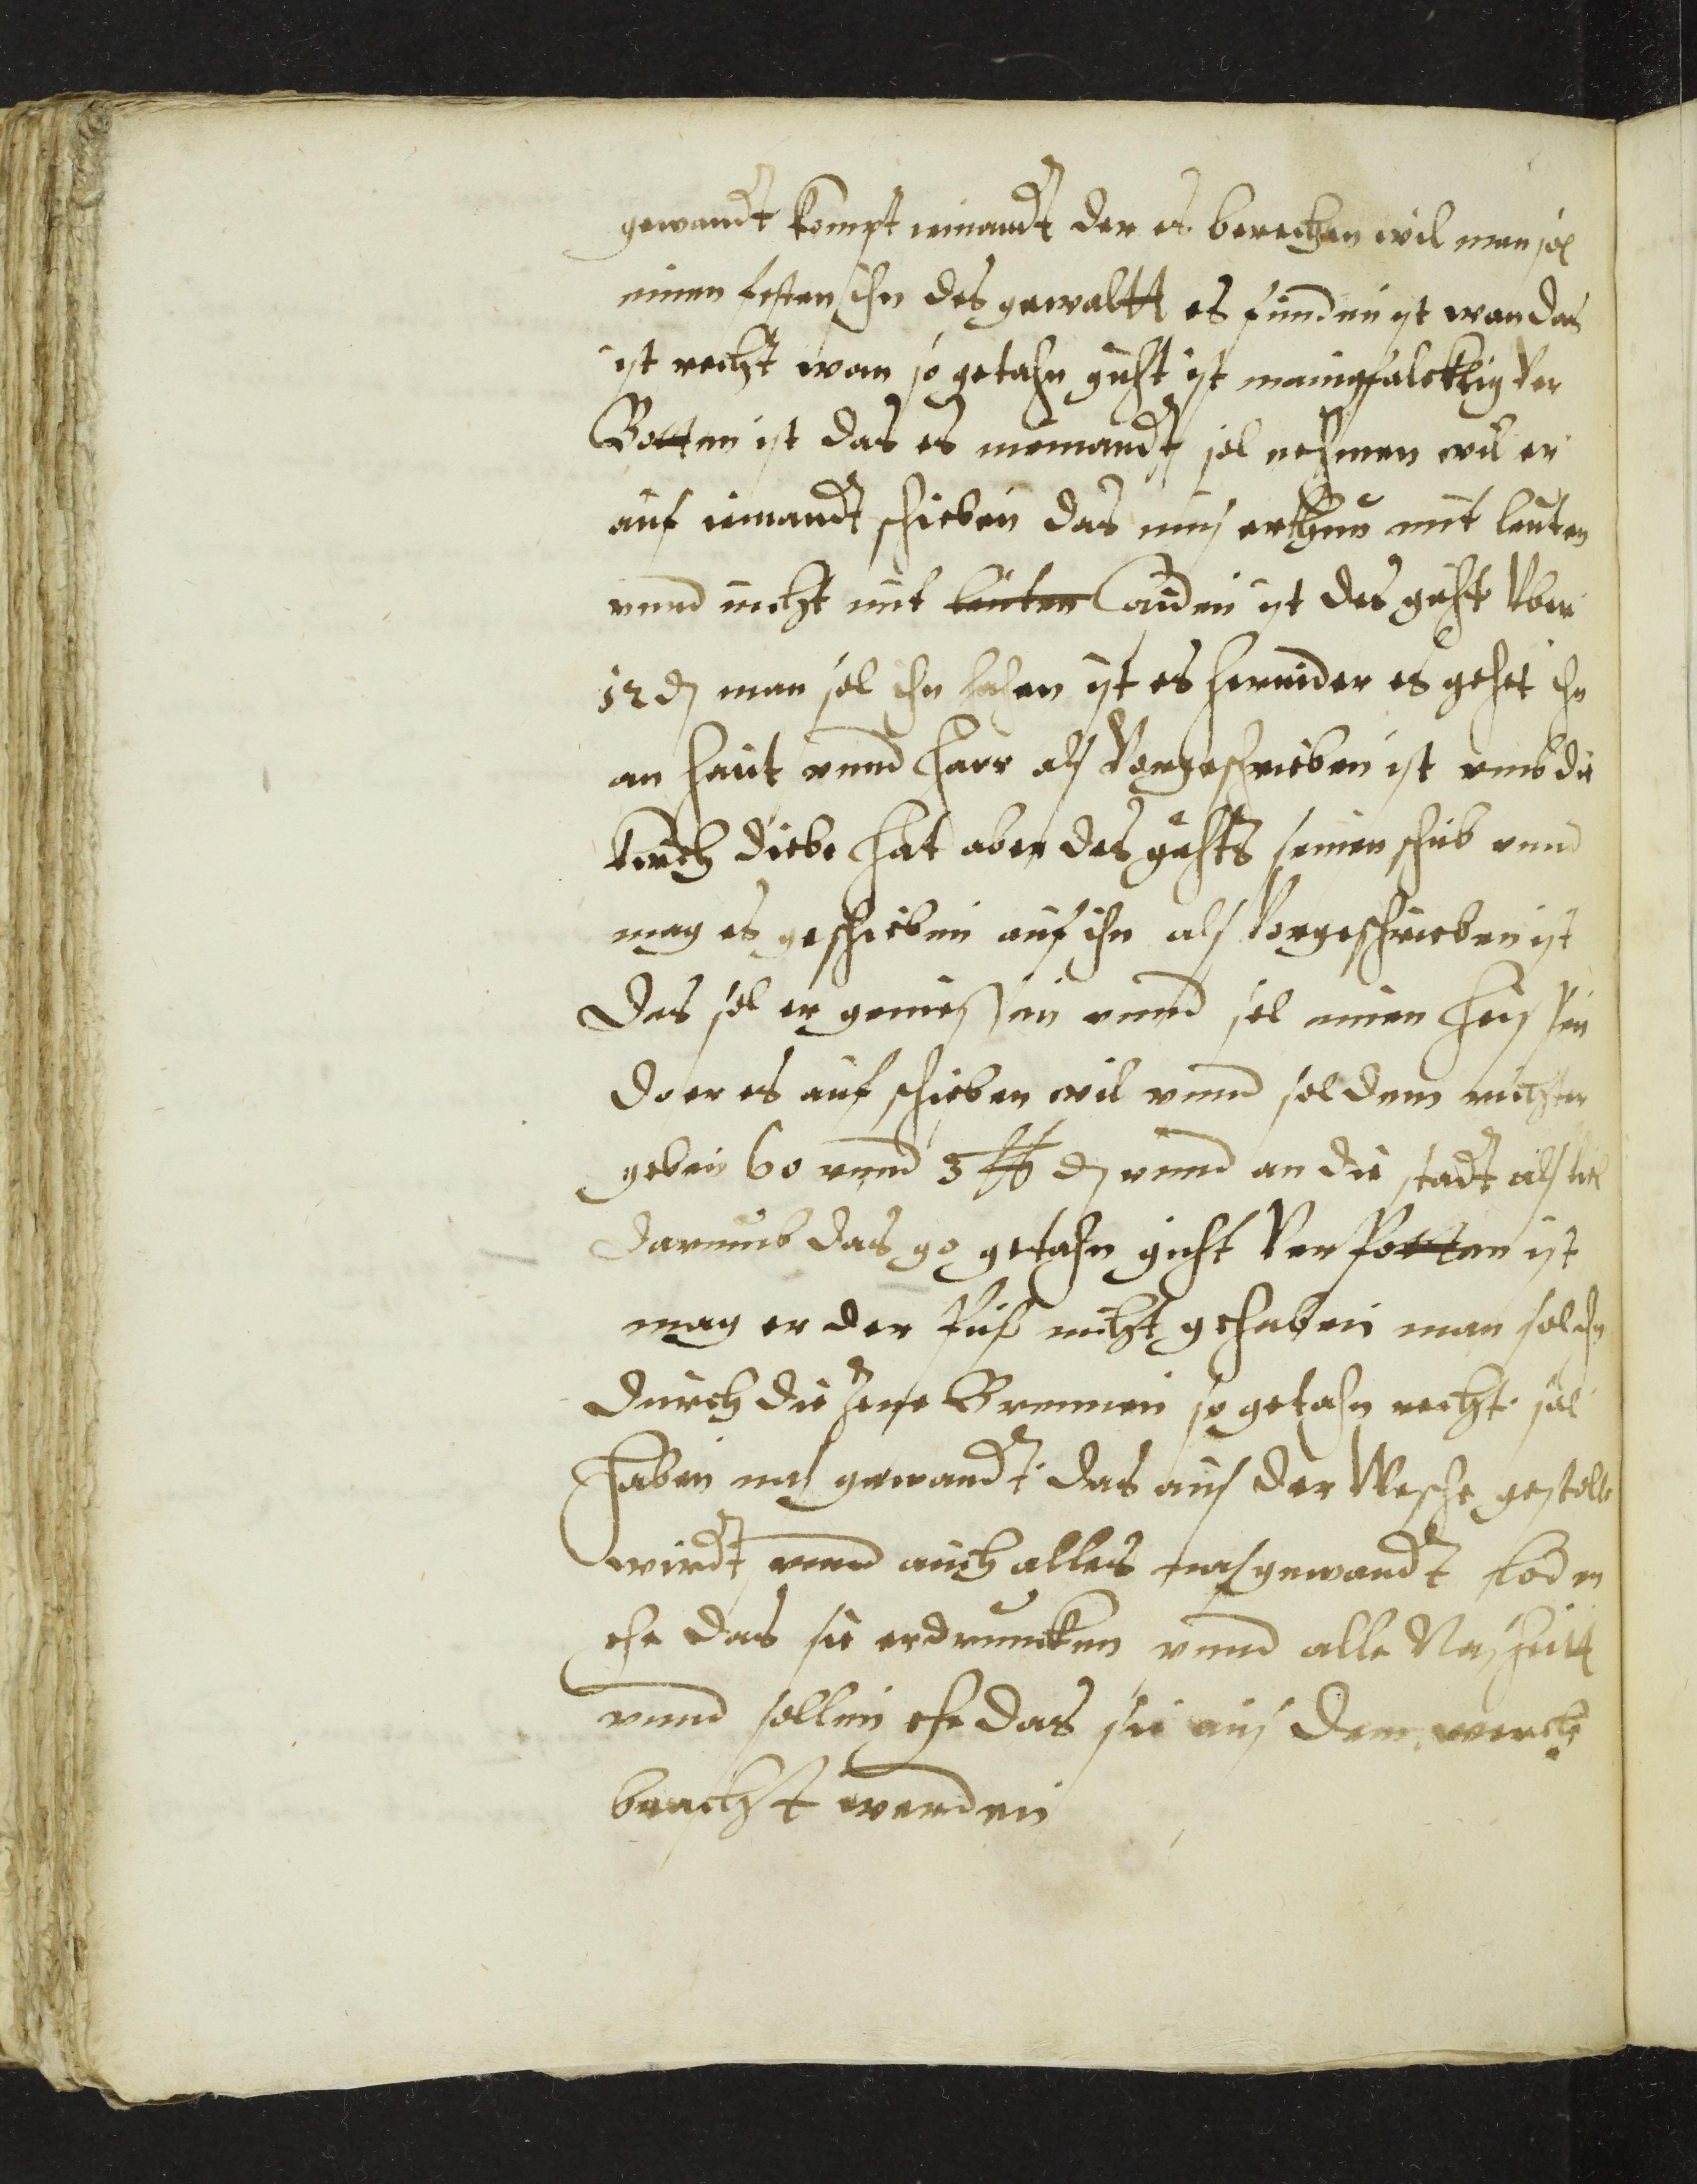 gewandt kompt iemandt der es berechen wil man sol
einen festen ihn des gewaltt es funden ist wan das
ist recht wan so getahn guht ist mainigfalcktig ver
Botten ist das es niemandt sol nehmen wil er
auf iemandt schieben das mus er thun mit leuten
vnnd nicht mit leuten Aiden ist des guht vber
12 ₰ man sol ihn hahen ist es hernider es gehet ihn
an haut vnnd harr als vorgeschrieben ist vmb die
kirch diebe hat aber das guhts seinen schub vnnd
mag es geschieben auf ihn als vorgeschrieben ist
Das sol er geniessen vnnd sol einen heissen
do er es auf schieben wil vnnd sol dem richter
geben 60 vnnd 3 ℔ ₰ vnnd an die stadt als viel
darumb das so getahn guht verPotten ist
mag er der Pus nicht gehaben man sol ihn
durch die Zene Brennen so getahn recht sol
haben nas gewandt das aus der Wesche gestolln
wirdt vnnd auch alles nasgewandt loden
ehe das sie erdruncken vnnd alle Nasheitt
vnnd sollen ehe das sie aus dem werch
bracht werden